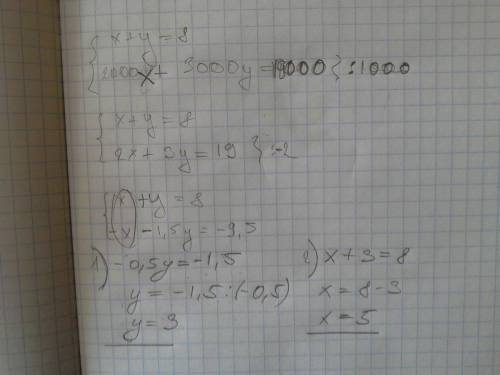 { x+y=8
2000x+ 3000y=19000 } :1000
{ x+y=8
2x+3y=19 } :-2
{ x+y=8
-x-1,5y=-9,5
1) -0,5y=-1,5
y=-1,5:(-0,5)
y=3
2) x+3=8
x=8-3
x=5